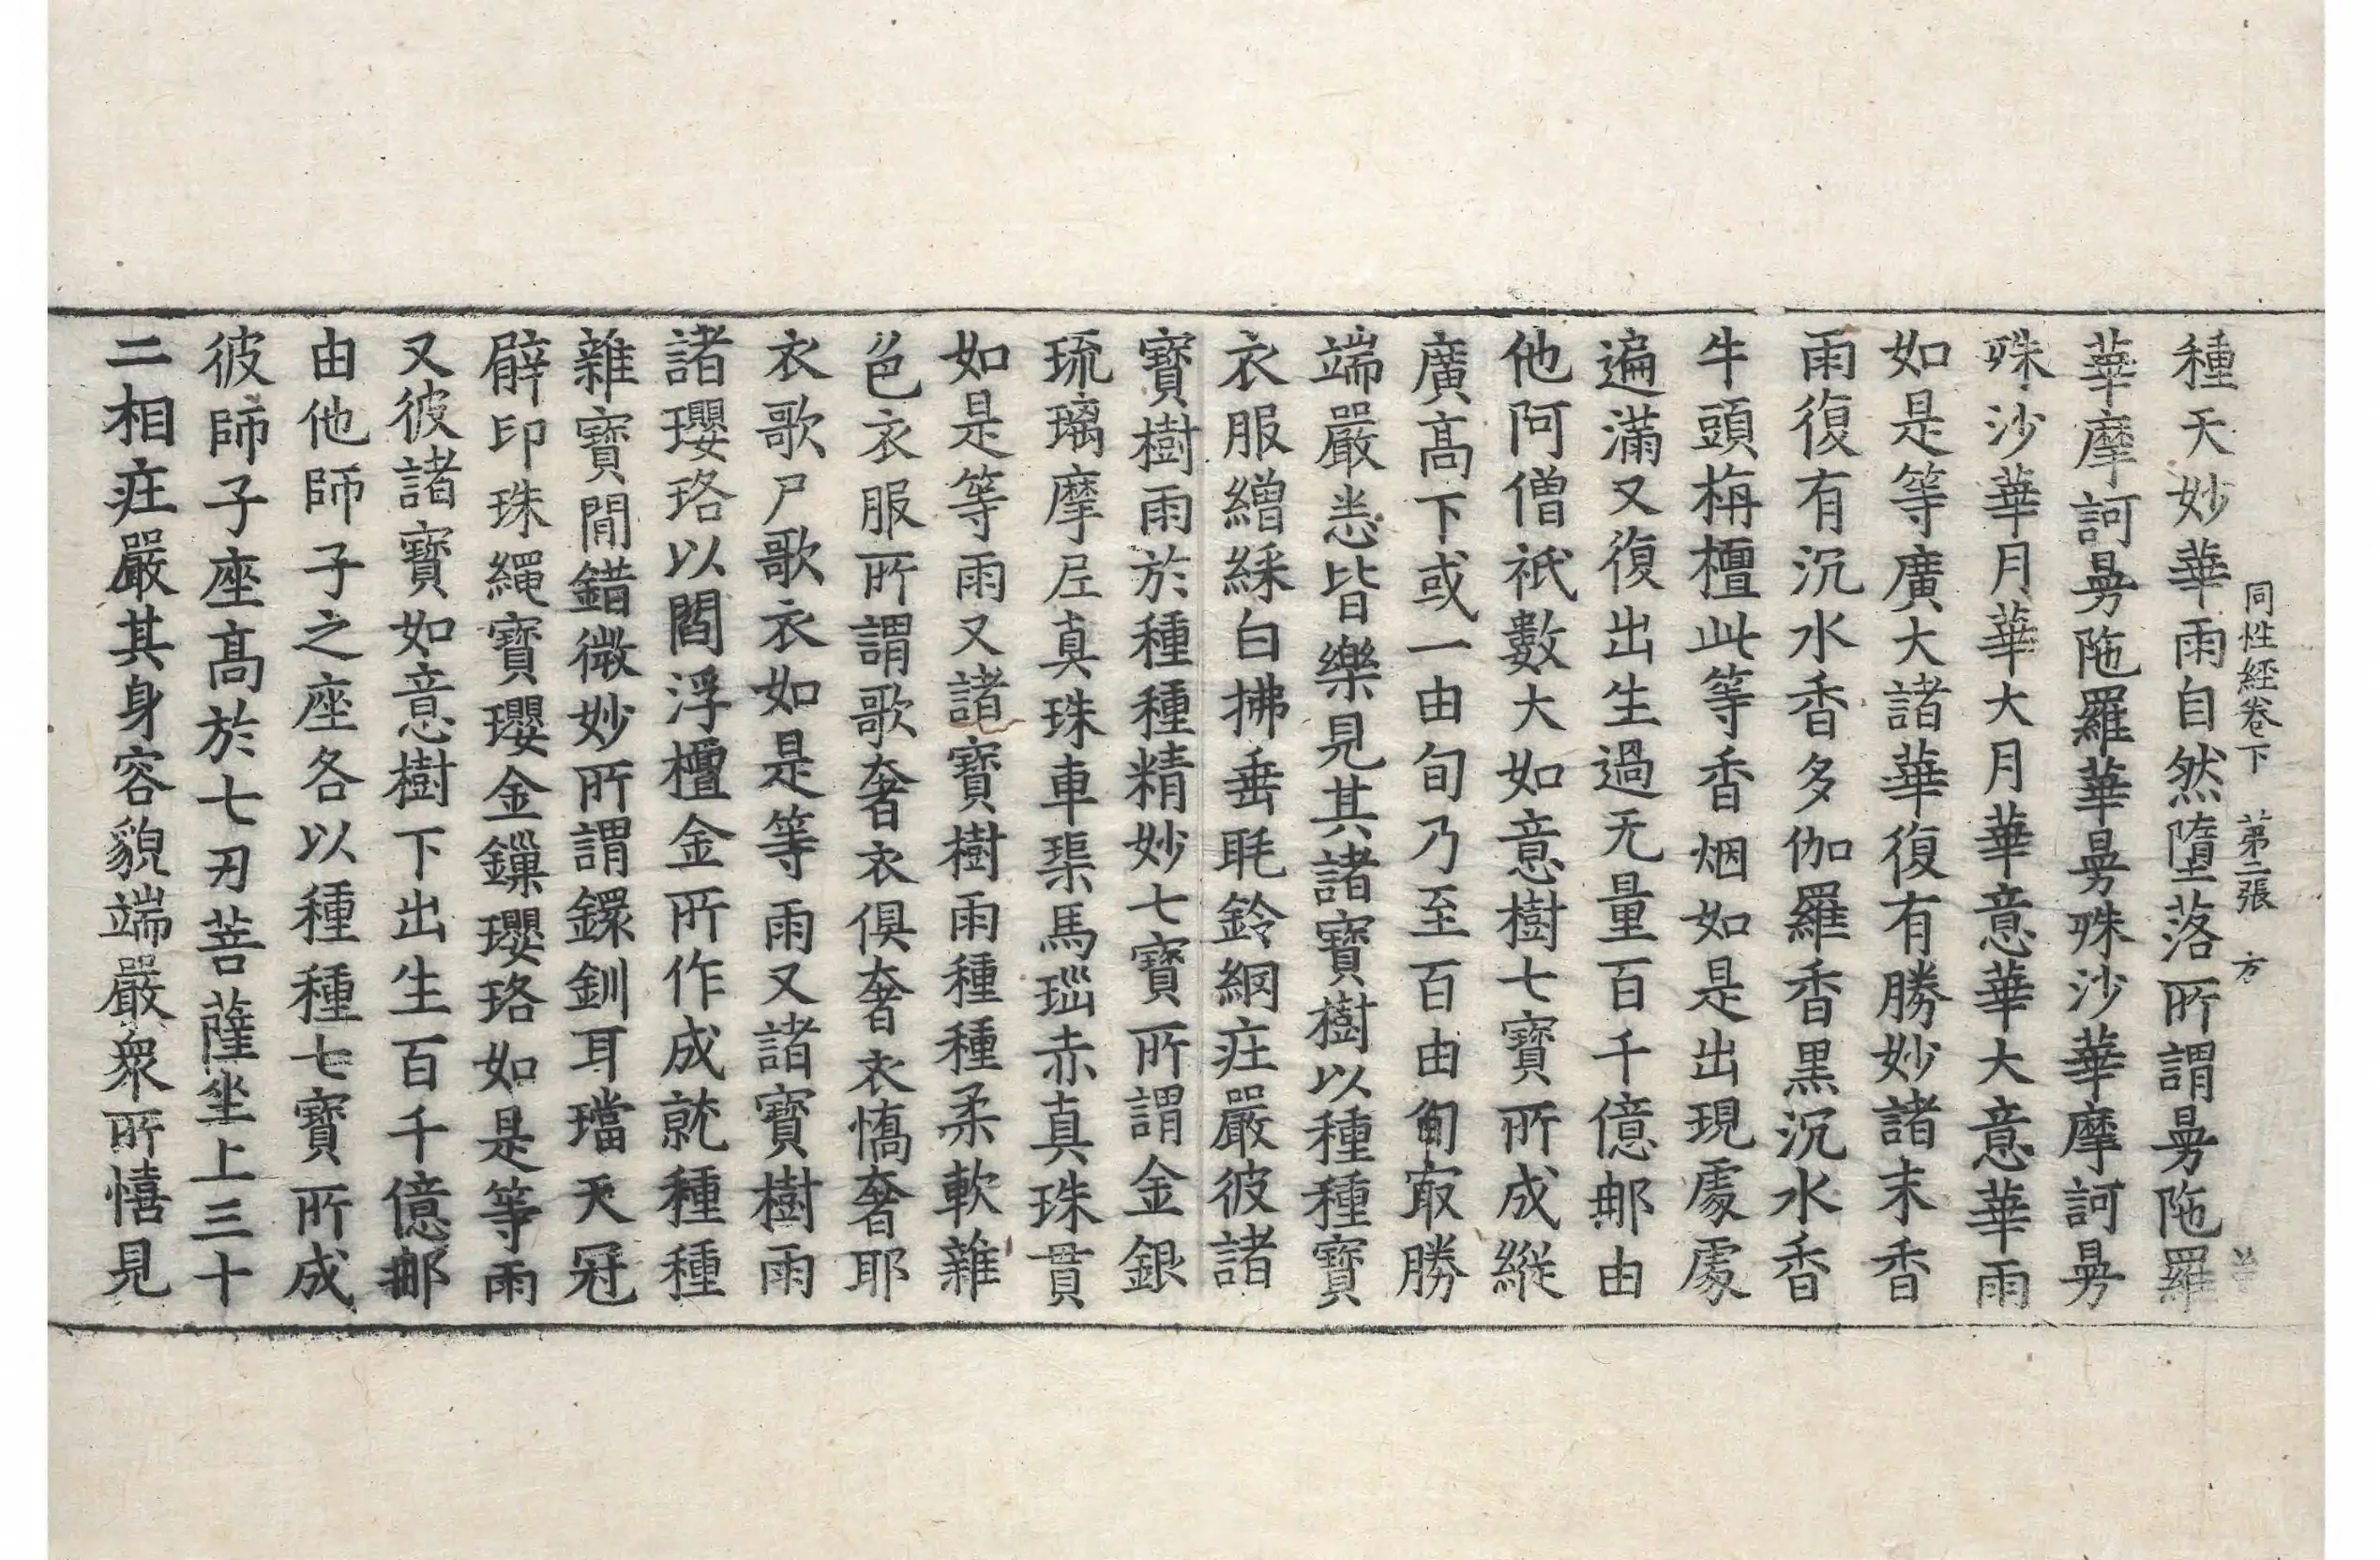 同性經卷下 第二張 方
種天妙華雨自然墮落所謂曼陁羅
華摩訶曼陁羅華曼殊沙華摩訶曼
殊沙華月華大月華意華大意華雨
如是等廣大諸華復有勝妙諸末香
雨復有沉水香多伽羅香黒沉水香
牛頭栴檀此等香烟如是出現處處
遍滿又復出生過无量百千億那由
他阿僧祇數大如意樹七寶所成縱
廣髙下或一由旬乃至百由旬㝡勝
端嚴悉皆樂見其諸寶樹以種種寶
衣服繒綵白拂垂毦鈴綱莊嚴彼諸
寶樹雨於種種精妙七寶所謂金銀
琉璃摩尼真珠車𤦲馬瑙赤真珠貫
如是等雨又諸寶樹雨種種柔軟雜
色衣服所謂歌奢衣俱奢衣憍奢耶
衣歌尸歌衣如是等雨又諸寶樹雨
諸瓔珞以閻浮檀金所作成就種種
雜寶閒錯微妙所謂鐶釧耳璫天冠
臂印珠繩寶瓔金鏁瓔珞如是等雨
又彼諸寶如意樹下出生百千億那
由他師子之座各以種種七寶所成
彼師子座髙於七刃菩薩坐上三十
二相莊嚴其身容貌端嚴衆所憘見